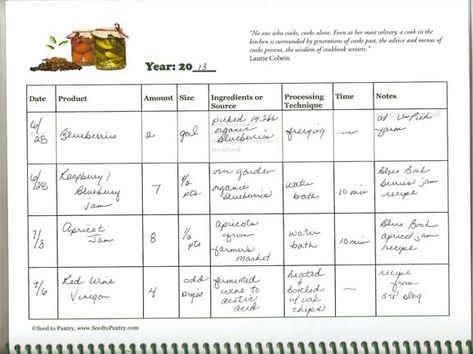 "No one who cooks, cooks alone. Even at her most solitary, a cook in the
kitchen is surrounded by generations of cooks past, the advice and menus of
cooks present, the wisdom of cookbook writers."
Laurie Colwin
Year: 2013
Date Product Amount Size Ingredients or Source Processing Technique Time Notes
6/28 Blueberries 2 gal picked 14 lbs organic blueberries freezing — at U-Pick farm
6/28 Raspberry/Blueberry Jam 7 1/2 pts our garden organic blueberries water bath 10 min Blue Book berries jam recipe
7/3 Apricot Jam 8 1/2 pts apricots from farmer's market water bath 10 min Blue Book apricot jam recipe
7/6 Red Wine Vinegar 4 odd fermented wine to acetic acid heated & bottled w/ oak chips — recipe from blog
©Seed to Pantry, www.SeedtoPantry.com